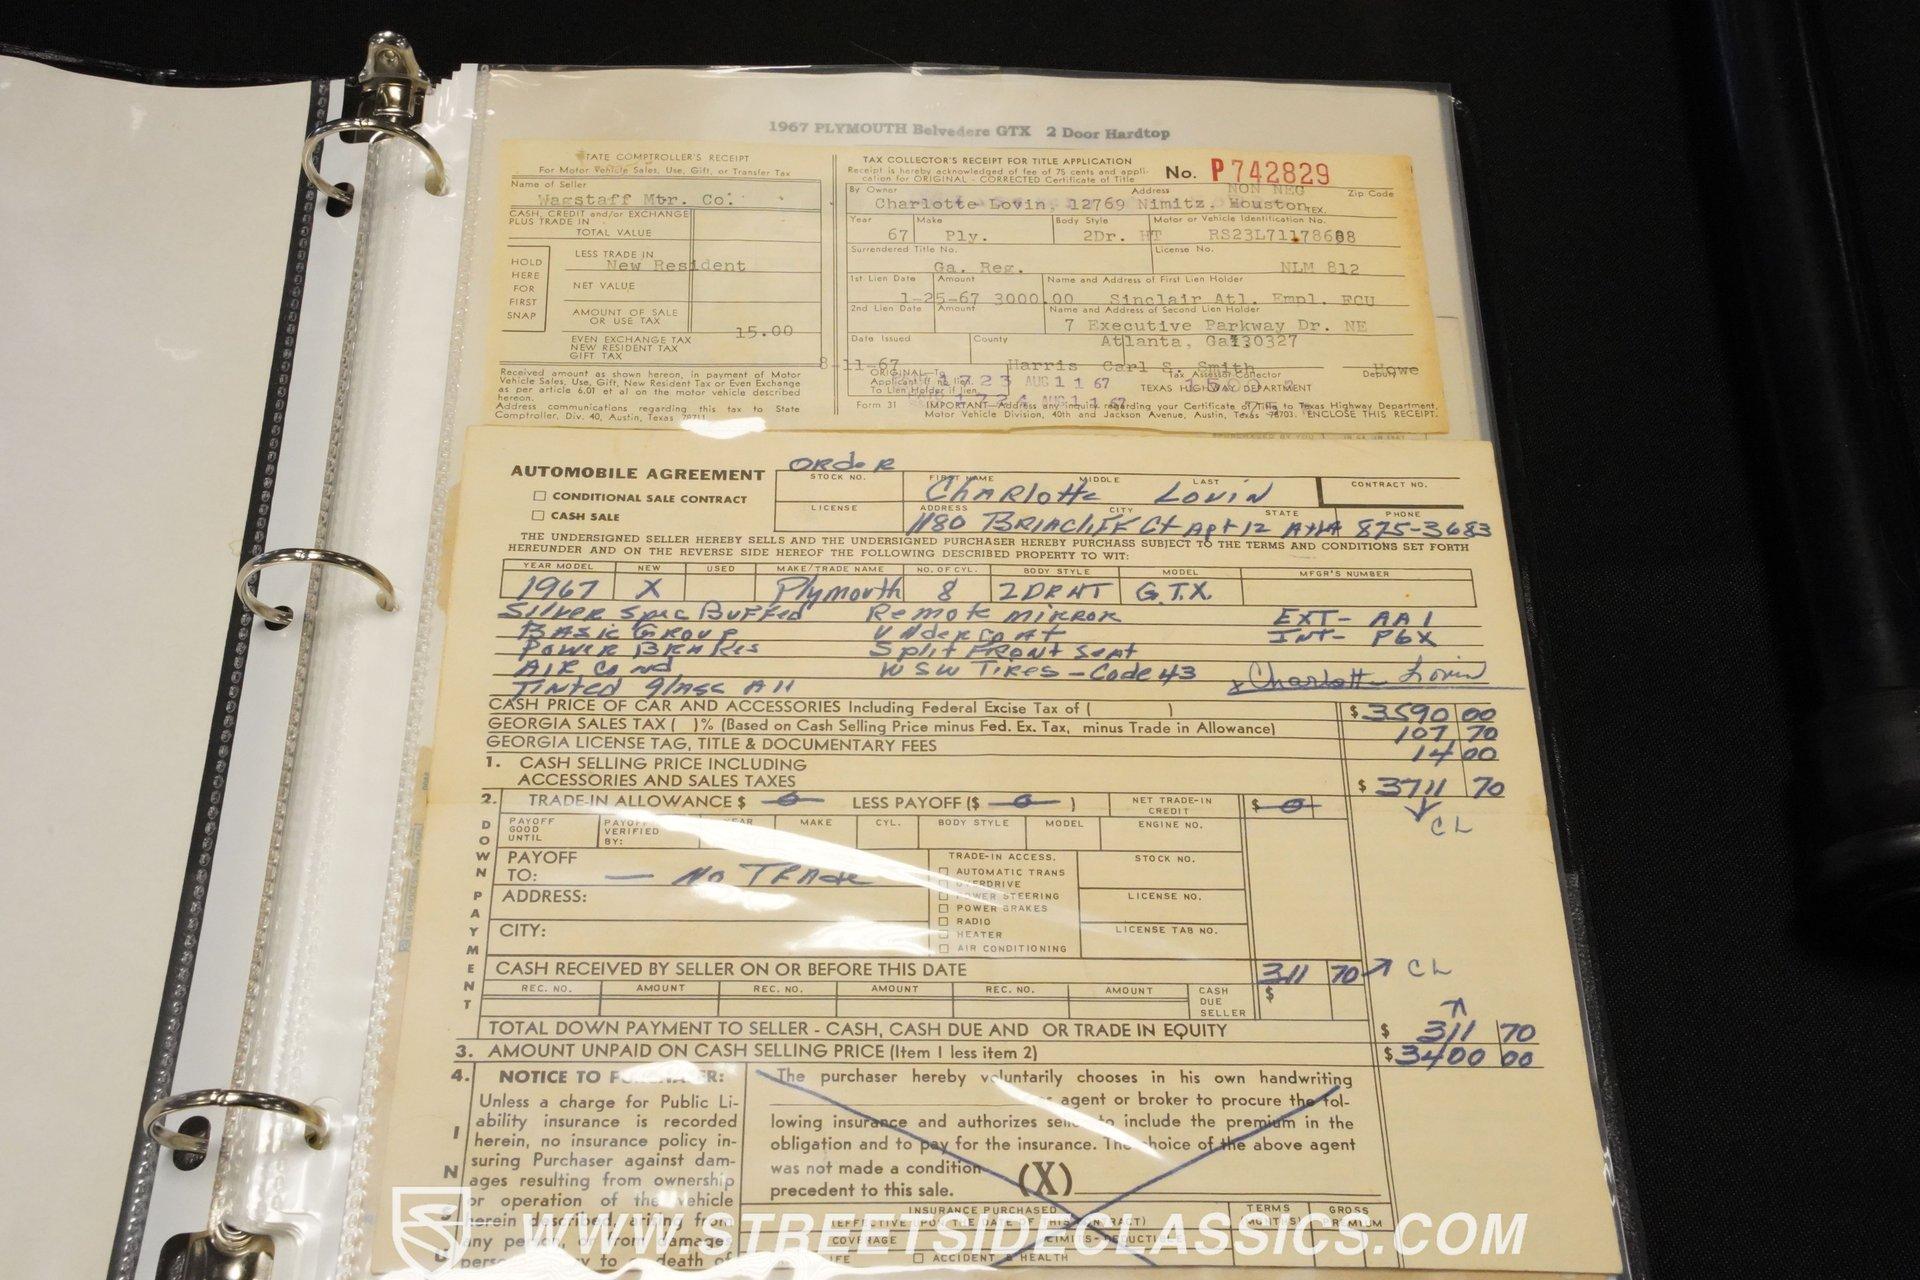 1967 PLYMOUTH Belvedere GTX 2 Door Hardtop
TATE COMPTROLLER'S RECEIPT
For Motor Vehicle Sales, Use, Gift, or Transfer Tax
Name of Seller
Wagstaff Mtr. Co.
CASH, CREDIT and/or EXCHANGE
PLUS TRADE IN
TOTAL VALUE
HOLD HERE FOR FIRST SNAP
LESS TRADE IN
New Resident
NET VALUE
AMOUNT OF SALE
OR USE TAX
15.00
EVEN EXCHANGE TAX
NEW RESIDENT TAX
GIFT TAX
Received amount as shown hereon, in payment of Motor
Vehicle Sales, Use, Gift, New Resident Tax or Even Exchange
as per article 6.01 et al on the motor vehicle described
hereon.
Address communications regarding this tax to State
Comptroller, Div. 40, Austin, Texas 78711
TAX COLLECTOR'S RECEIPT FOR TITLE APPLICATION
Receipt is hereby acknowledged of fee of 75 cents and appli-
cation for ORIGINAL - CORRECTED Certificate of Title
No. P742829
NON NEG
By Owner Address Zip Code
Charlotte Lovin, 12769 Nimitz, Houston TEX.
Year Make Body Style Motor or Vehicle Identification No.
67 Ply. 2Dr. HT RS23L71178608
Surrendered Title No. License No.
Ga. Reg. NLM 812
1st Lien Date Amount Name and Address of First Lien Holder
1-25-67 3000.00 Sinclair Atl. Empl. FCU
2nd Lien Date Amount Name and Address of Second Lien Holder
7 Executive Parkway Dr. NE
Date Issued County Atlanta, Ga. 30327
8-11-67 Harris Carl S. Smith Howe
ORIGINAL-To Tax Assessor-Collector Deputy
Applicant if no lien. 1723 AUG 11 67 TEXAS HIGHWAY DEPARTMENT
To Lien Holder if lien 1724 AUG 11 67
Form 31 IMPORTANT-Address any inquiry regarding your Certificate of Title to Texas Highway Department,
Motor Vehicle Division, 40th and Jackson Avenue, Austin, Texas 78703. ENCLOSE THIS RECEIPT.
AUTOMOBILE AGREEMENT
ORdeR
STOCK NO. FIRST NAME MIDDLE LAST CONTRACT NO.
CONDITIONAL SALE CONTRACT
ChARlotte LOVIN
CASH SALE
LICENSE ADDRESS CITY STATE PHONE
1180 BRIACliFF Ct Apt 12 AtlA 875-3683
THE UNDERSIGNED SELLER HEREBY SELLS AND THE UNDERSIGNED PURCHASER HEREBY PURCHASES SUBJECT TO THE TERMS AND CONDITIONS SET FORTH
HEREUNDER AND ON THE REVERSE SIDE HEREOF THE FOLLOWING DESCRIBED PROPERTY TO WIT:
YEAR MODEL NEW USED MAKE/TRADE NAME NO. OF CYL. BODY STYLE MODEL MFGR'S NUMBER
1967 X Plymouth 8 2DR HT G.T.X.
SilveR Spec Buffed Remote miRROR EXT- AA1
BASic GROUP UNdeRcoAt INT- P6X
PoweR BRAKes Split FRONT SeAt
AIR Cond WSW TiRes - Code 43 x Charlotte Lovin
Tinted glass All
CASH PRICE OF CAR AND ACCESSORIES Including Federal Excise Tax of ( ) $ 3590 00
GEORGIA SALES TAX ( )% (Based on Cash Selling Price minus Fed. Ex. Tax, minus Trade in Allowance) 107 70
GEORGIA LICENSE TAG, TITLE & DOCUMENTARY FEES 14 00
1. CASH SELLING PRICE INCLUDING
ACCESSORIES AND SALES TAXES $ 3711 70
2. TRADE-IN ALLOWANCE $ 0 LESS PAYOFF ($ 0 ) NET TRADE-IN CREDIT $ 0
CL
DOWN PAYMENT
PAYOFF GOOD UNTIL PAYOFF VERIFIED BY: YEAR MAKE CYL. BODY STYLE MODEL ENGINE NO.
PAYOFF TO: — No TRAde
TRADE-IN ACCESS. STOCK NO.
AUTOMATIC TRANS
OVERDRIVE
ADDRESS:
POWER STEERING LICENSE NO.
POWER BRAKES
RADIO
CITY:
HEATER LICENSE TAB NO.
AIR CONDITIONING
CASH RECEIVED BY SELLER ON OR BEFORE THIS DATE 311 70 CL
REC. NO. AMOUNT REC. NO. AMOUNT REC. NO. AMOUNT CASH DUE SELLER $
TOTAL DOWN PAYMENT TO SELLER - CASH, CASH DUE AND OR TRADE IN EQUITY $ 311 70
3. AMOUNT UNPAID ON CASH SELLING PRICE (Item 1 less item 2) $ 3400 00
4. NOTICE TO PURCHASER:
Unless a charge for Public Li-
ability insurance is recorded
herein, no insurance policy in-
suring Purchaser against dam-
ages resulting from ownership
or operation of the vehicle
herein described, arising from
any person, or from damages
death of
The purchaser hereby voluntarily chooses in his own handwriting
agent or broker to procure the fol-
lowing insurance and authorizes seller to include the premium in the
obligation and to pay for the insurance. The choice of the above agent
was not made a condition
precedent to this sale. (X)
INSURANCE PURCHASED TERMS GROSS
(EFFECTIVE UPON THE DATE OF THIS CONTRACT) MONTHS PREMIUM
COVERAGE LIMITS - DEDUCTIBLE
LIFE ACCIDENT & HEALTH
WWW.STREETSIDECLASSICS.COM